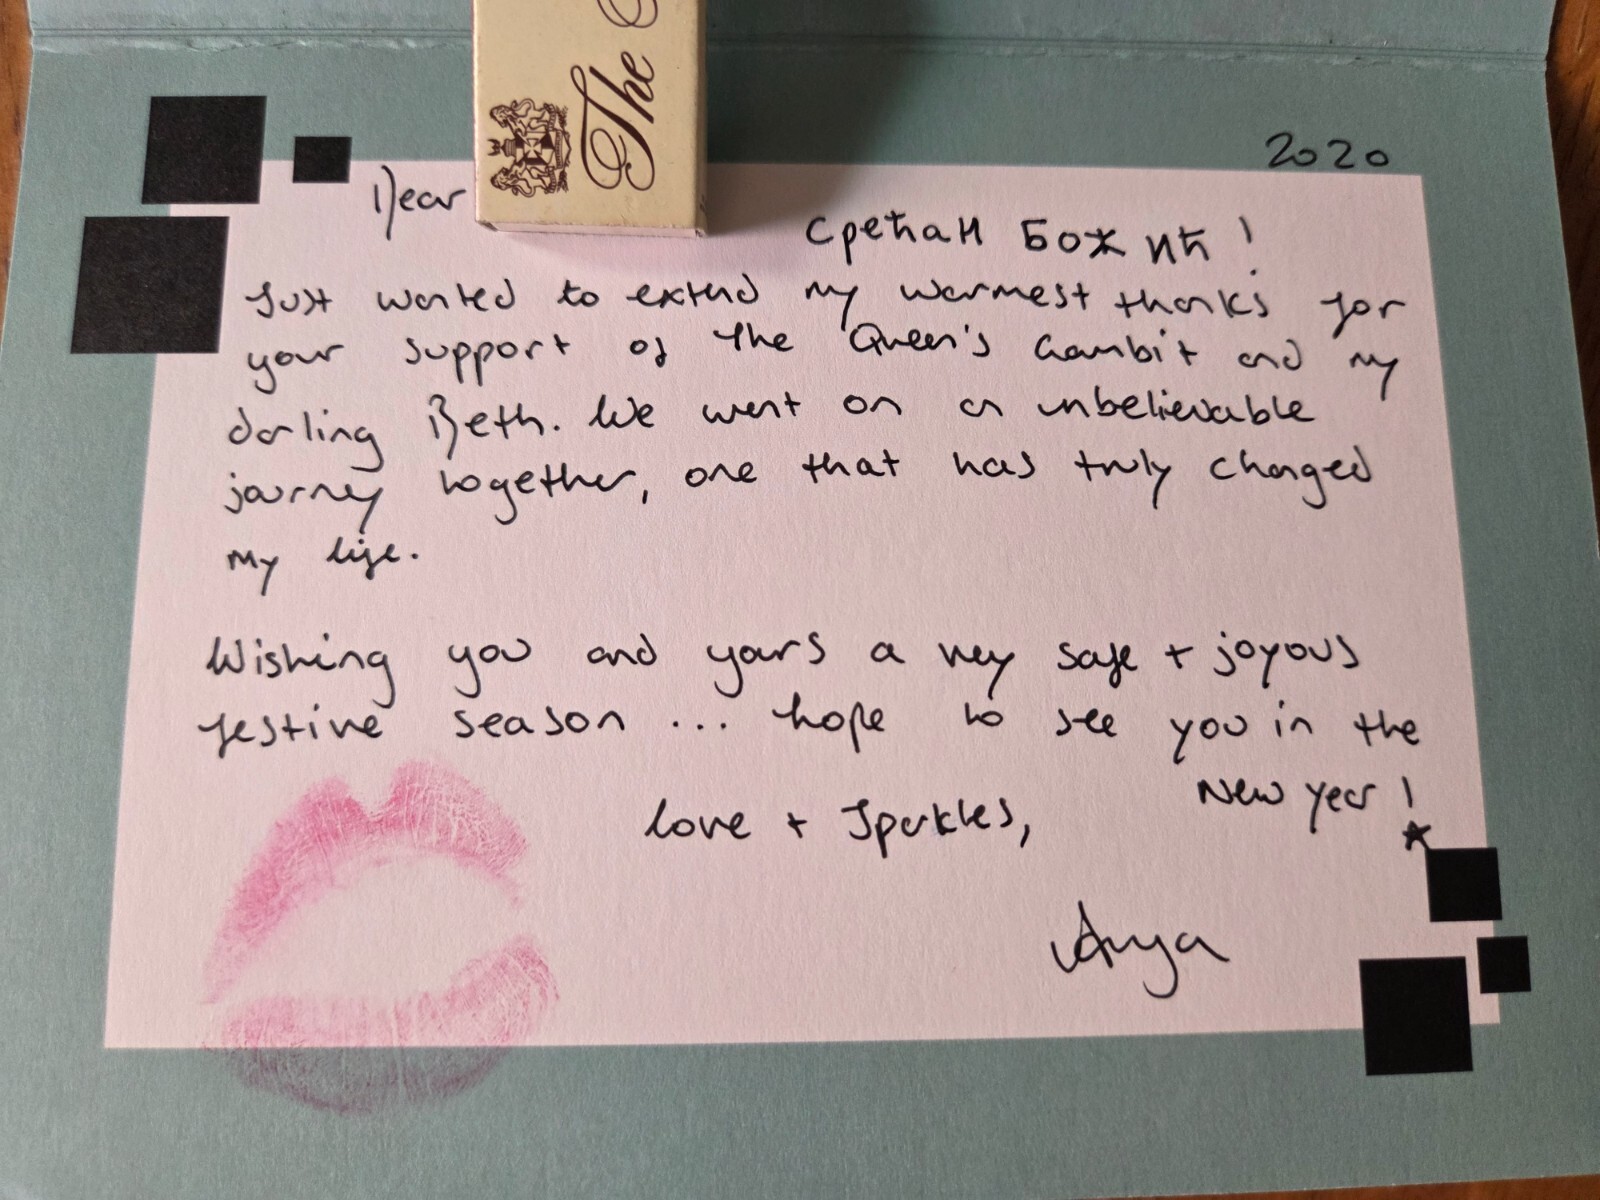 2020
The
Dear
Срећан Божић!
Just wanted to extend my warmest thanks for
your support of The Queen's Gambit and my
darling Beth. We went on an unbelievable
journey together, one that has truly changed
my life.
Wishing you and yours a very safe + joyous
festive season ... hope to see you in the
New Year!
Love + Sparkles,
Anya